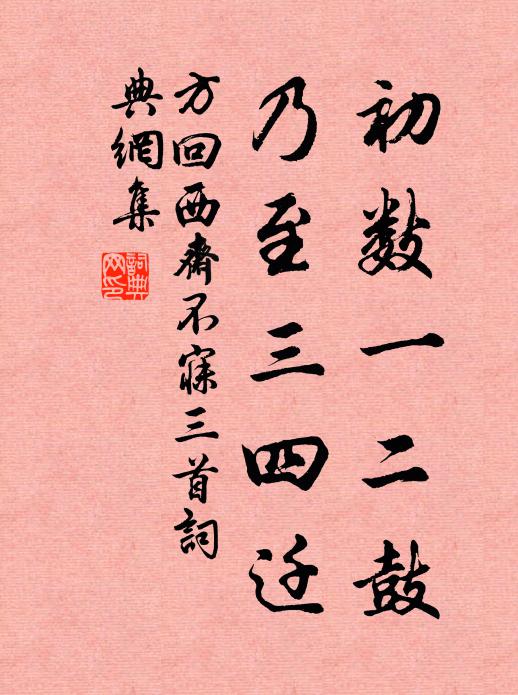 初数一二鼓
乃至三四迁
方回西齋不寐三首詞
典網集
詞典网印